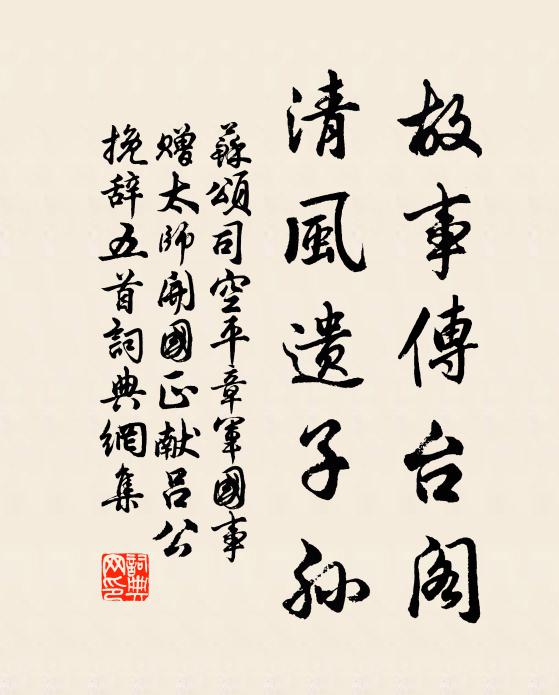 故事傳台阁
清風遗子孙
蘇頌司空平章軍國事
赠太師開國正献吕公
挽辞五首詞典網集
詞典网印